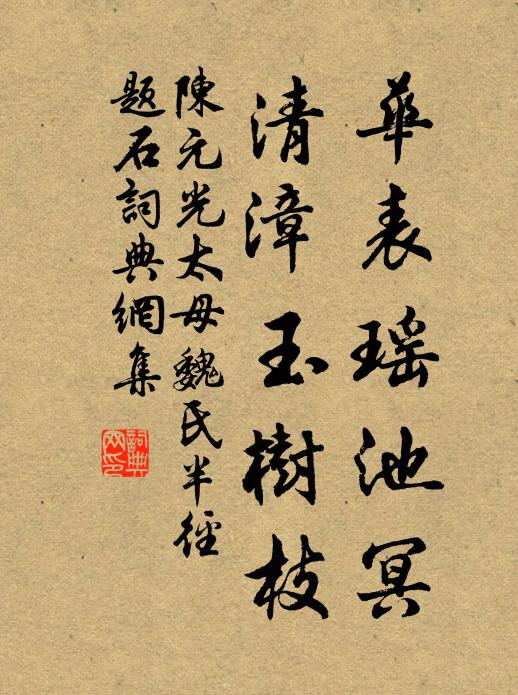 華表瑶池冥
清漳玉樹枝
陳元光太母魏氏半徑
題石詞典網集
詞典
网印